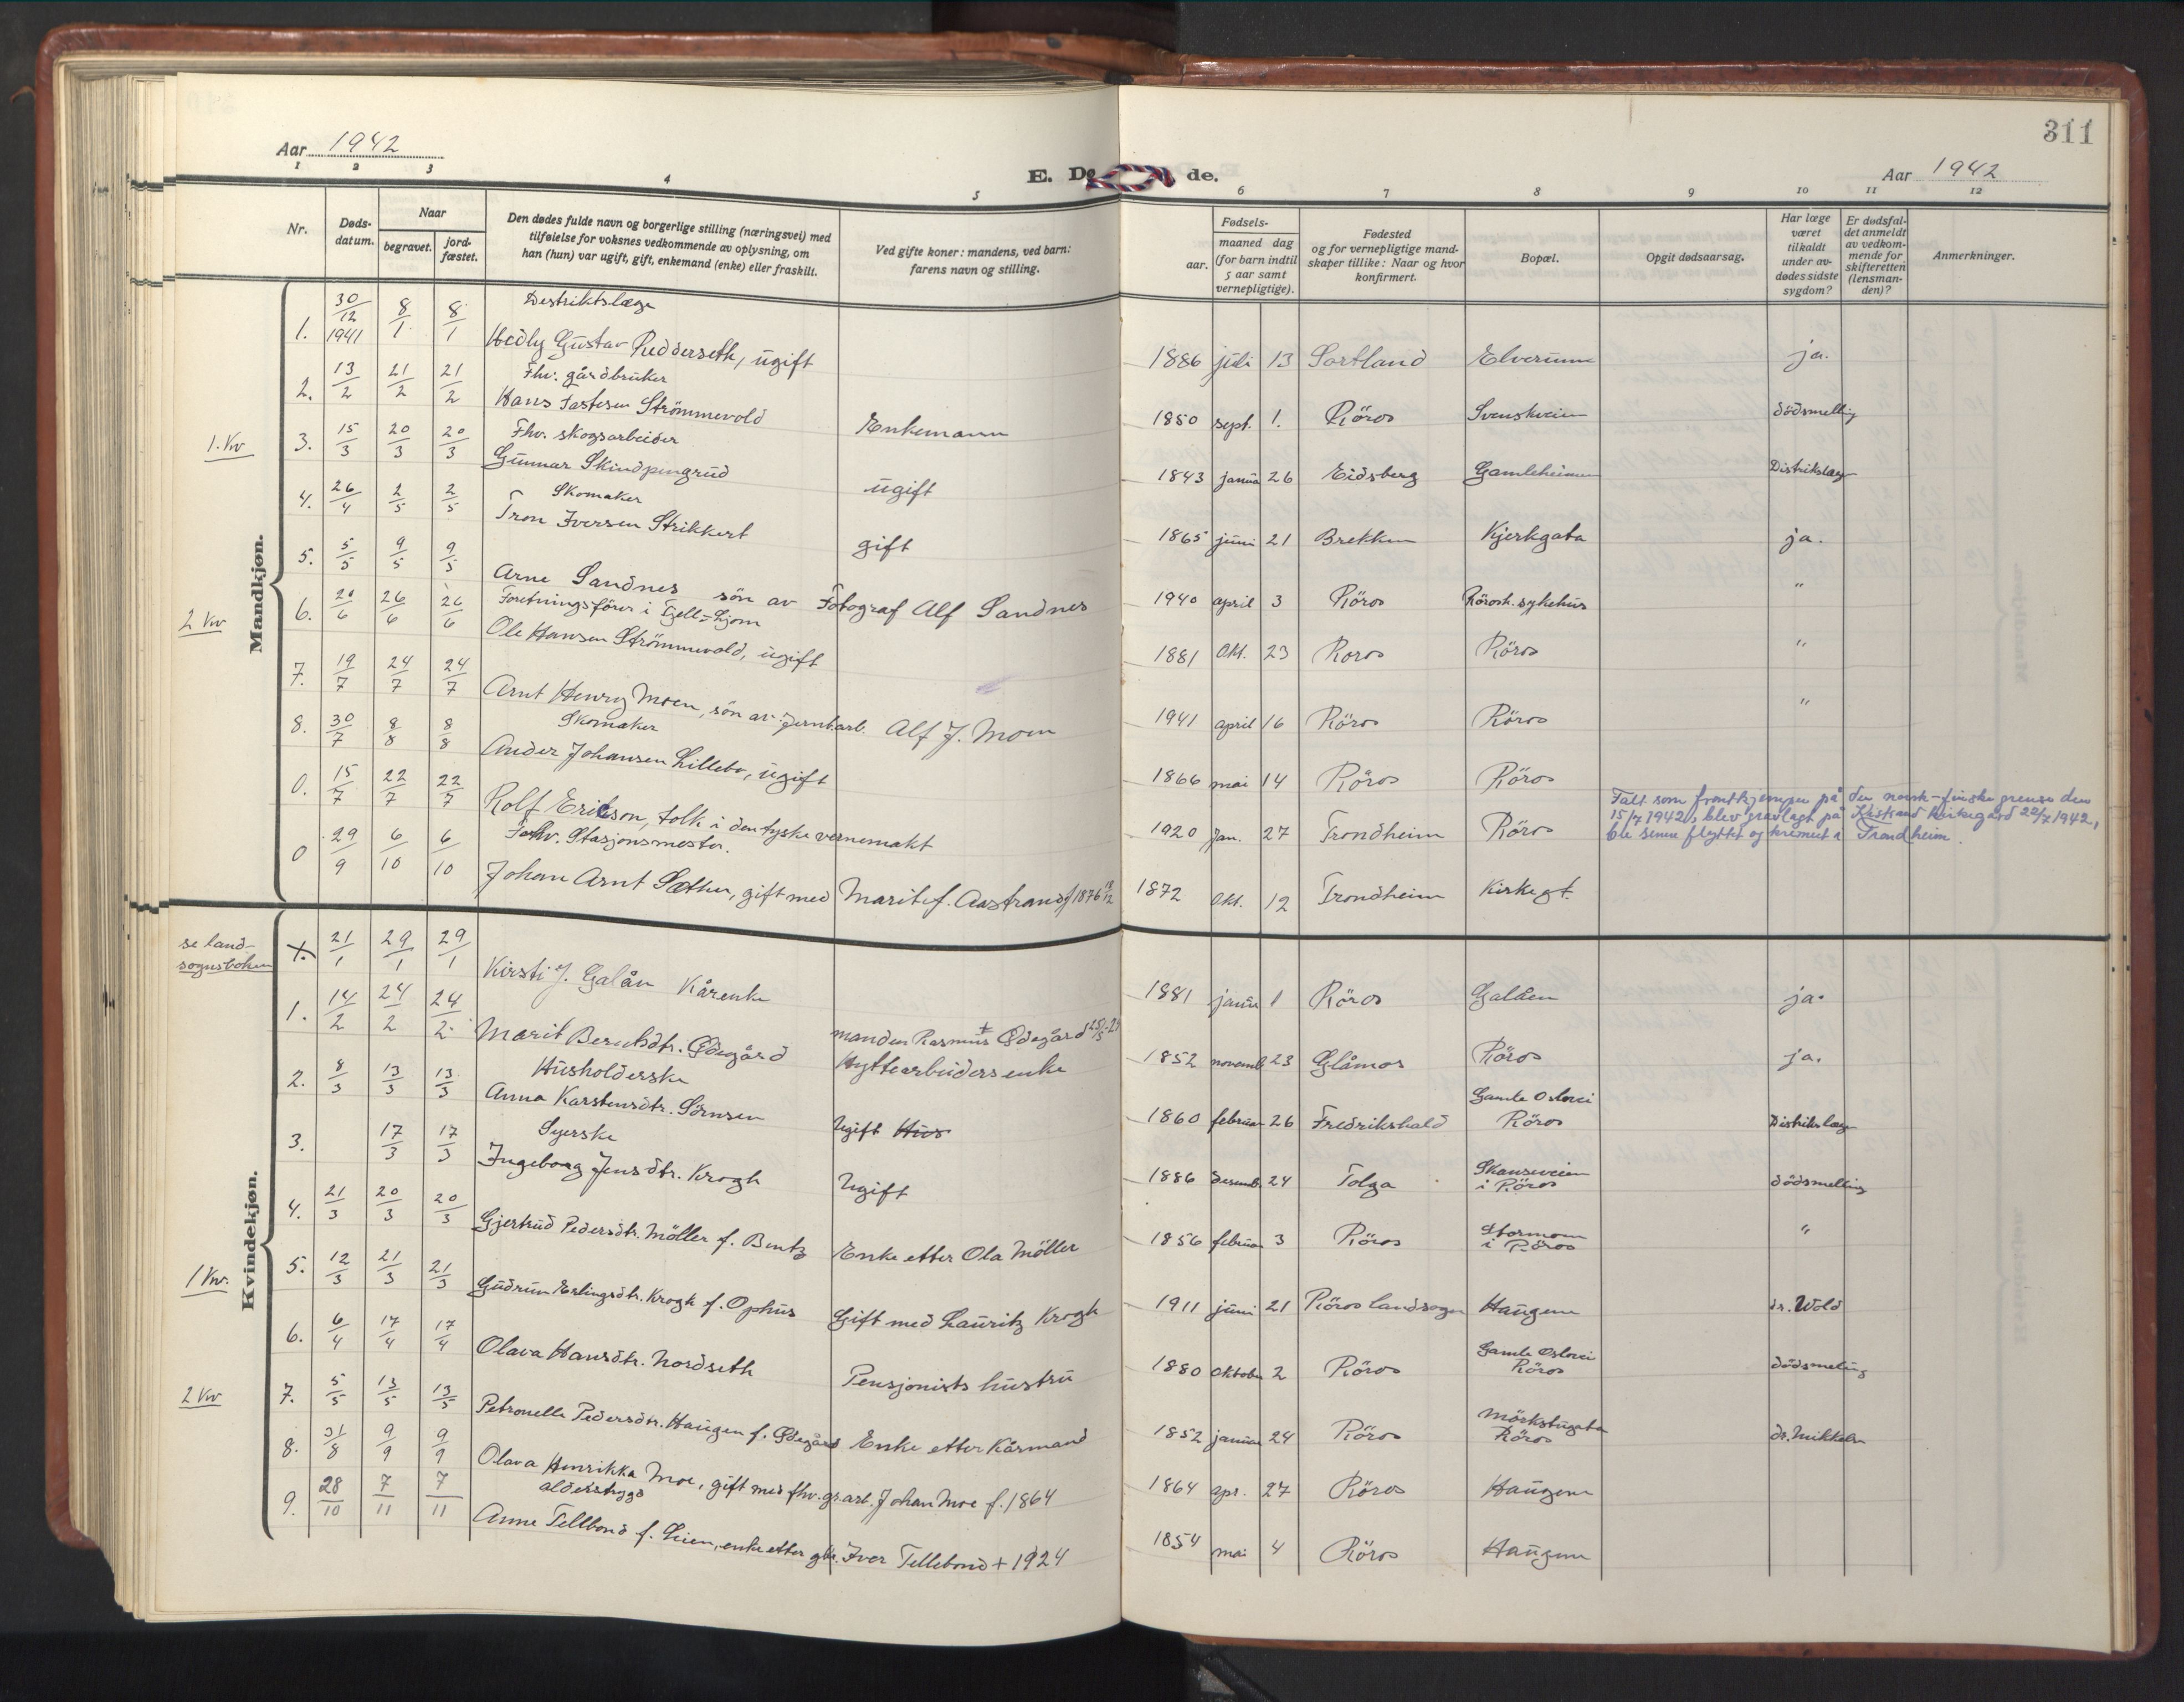 311
Aar 1942
E. Dø de.
Aar 1942
1 2 3 4 5 6 7 8 9 10 11 12
Nr.
Døds-
datum.
Naar
begravet.
jord-
fæstet.
Den dødes fulde navn og borgerlige stilling (næringsvei) med
tilføielse for voksnes vedkommende av oplysning, om
han (hun) var ugift, gift, enkemand (enke) eller fraskilt.
Ved gifte koner: mandens, ved barn:
farens navn og stilling.
Fødsels-
aar.
maaned dag
(for barn indtil
5 aar samt
vernepligtige).
Fødested
og for vernepligtige mand-
skaper tillike: Naar og hvor
konfirmert.
Bopæl.
Opgit dødsaarsag.
Har læge
været
tilkaldt
under av-
dødes sidste
sygdom?
Er dødsfal-
det anmeldt
av vedkom-
mende for
skifteretten
(lensman-
den)?
Anmerkninger.
Mandkjøn.
1. 30/12 1941 8/1 8/1 Distriktslæge
Hedly Gustav Rudderseth, ugift 1886 juli 13 Sortland Elverum ja.
2. 13/2 21/2 21/2 Fhv. gårdbruker
Hans Tostesen Strömmevold Enkemann 1850 sept. 1. Röros Svenskveien dödsmelding
1. Kv 3. 15/3 20/3 20/3 Fhv. skogsarbeider
Gunnar Skindpungrud ugift 1843 janua 26 Eidsberg Gamleheimen Distrikslæge
4. 26/4 2/5 2/5 Skomaker
Tron Iversen Strikkert gift 1865 juni 21 Brekken Kjerkgata ja.
5. 5/5 9/5 9/5
Arne Sandnes sön av Fotograf Alf Sandnes 1940 april 3 Röros Rörosh. sykehus "
2 Kv 6. 20/6 26/6 26/6 Foretningsförer i Fjell-Ljom
Ole Hansen Strömmevold, ugift 1881 Okt. 23 Roros Röros "
7. 19/7 24/7 24/7
Arnt Henry Moen, sön av Jernb.arb. Alf J. Moen 1941 april 16 Röros Röros "
8. 30/7 8/8 8/8 Skomaker
Ander Johansen Lillebo, ugift 1866 mai 14 Röros Röros
0. 15/7 22/7 22/7
Rolf Ericson, tolk i den tyske vernemakt 1920 Jan. 27 Trondheim Röros
Falt som frontkjemper på den norsk-finske grense den
15/7 1942, blev gravlagt på Kistrand kirkegård 22/7 1942,
ble senere flyttet og kremert i Trondheim.
0 29/9 6/10 6/10 Forhv. Stasjonsmester.
Johan Arnt Sæther, gift med Marit f. Aastrand f 1876 12/12 1872 Okt. 12 Trondheim Kirkegt.
Kvindekjøn.
se land-
sognsboken
+. 21/1 29/1 29/1
Kirsti J. Galåen Kårenke 1881 janua 1 Röros Galåen ja.
1. 14/2 24/2 24/2.
Marit Berntsdtr. Ödegård manden Rasmus Ödegård + 25/5-23
Hyttearbeidersenke 1852 novemb 23 Glåmos Röros ja.
2. 8/3 13/3 13/3 Husholderske
Anna Karstensdtr. Sörnsen Ugift Hus 1860 februar 26 Fredrikshald Gamle Oslovei
Röros Distrikslæge
3. 17/3 17/3 Syerske
Ingeborg Jensdtr. Krogh Ugift 1886 desemb. 24 Tolga Skanseveien
i Röros dödsmelding
4. 21/3 20/3 20/3
Gjertrud Pedersdtr. Möller f. Bentz Enke etter Ola Möller 1856 februar 3 Röros Stormoen
i Röros "
1 Kv. 5. 12/3 21/3 21/3
Gudrun Erlingsdtr. Krogh f. Ophus Gift med Lauritz Krogh 1911 juni 21 Röros landsogn Haugen dr. Wold
6. 6/4 17/4 17/4
Olava Hansdtr. Nordseth Pensjonists hustru 1880 oktober 2 Röros Gamle Oslovei
Röros dödsmelding
2 Kv 7. 5/5 13/5 13/5
Petronelle Pedersdtr. Haugen f. Ödegård Enke etter Kårmand 1852 januar 24 Röros Mörkstugata
Röros dr. Mikkelsn
8. 31/8 9/9 9/9
Olava Henrikka Moe, gift med fhv. gr.arb. Johan Moe f. 1864 1864 apr. 27 Röros Haugen
9. 28/10 7/11 7/11 alderstrygd
Anne Tellbond f. Lien, enke etter gbr. Iver Tellebond + 1924 1854 mai 4 Röros Haugen